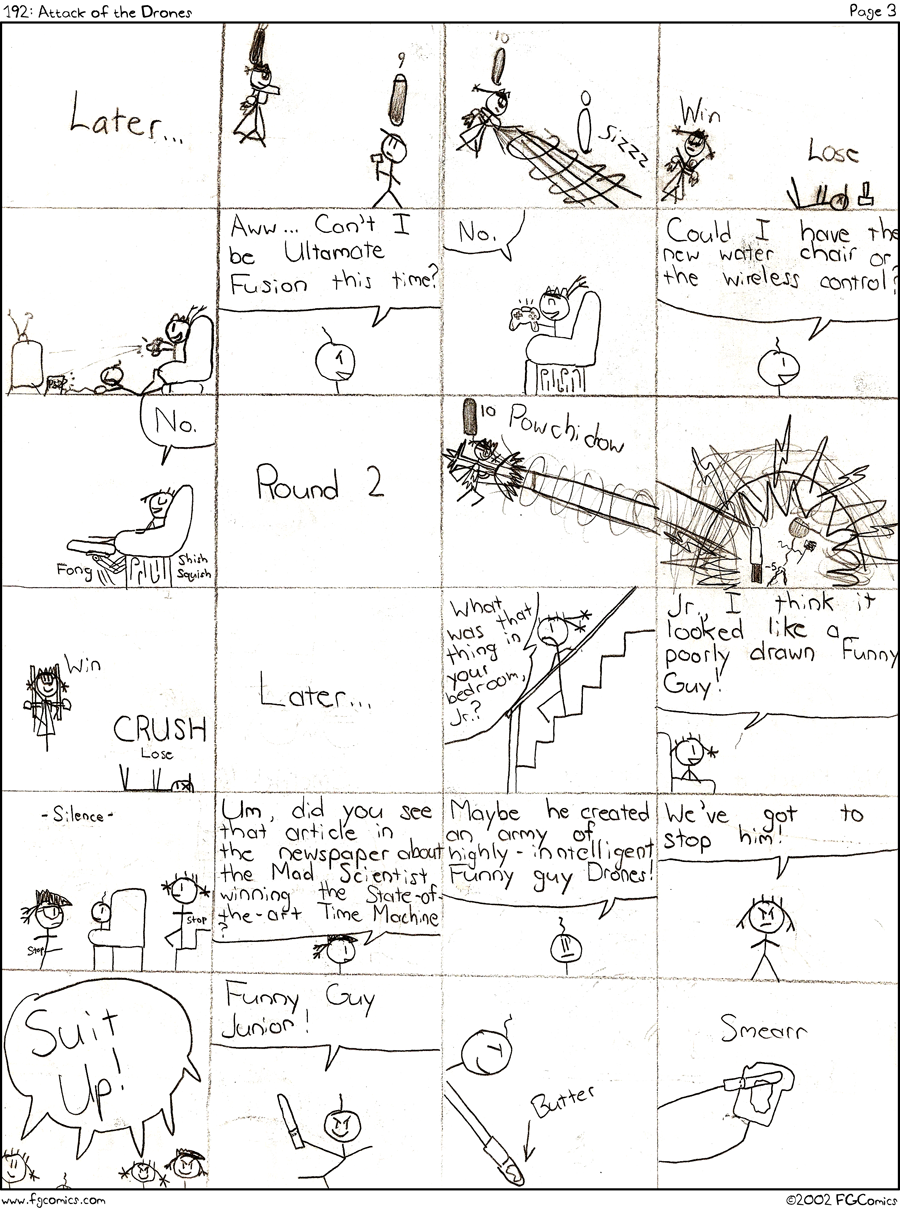 192: Attack of the Drones
Page 3
Later...
9
10
Sizzz
Win
Lose
Aww... Can't I
be Ultamate
Fusion this time?
No.
Could I have the
new water chair or
the wireless control?
No.
Fong
Shish
Squish
Round 2
10
Powchidow
-5
Win
CRUSH
Lose
Later...
What
was that
thing in
your
bedroom,
Jr.?
Jr., I think it
looked like a
poorly drawn Funny
Guy!
-Silence-
Stop
Stop
Um, did you see
that article in
the newspaper about
the Mad Scientist
winning the State-of-
the-art Time Machine
?
Maybe he created
an army of
highly-inntelligent
Funny guy Drones!
We've got to
stop him!
Suit
Up!
Funny Guy
Junior!
Butter
Smearr
www.fgcomics.com
©2002 FGComics